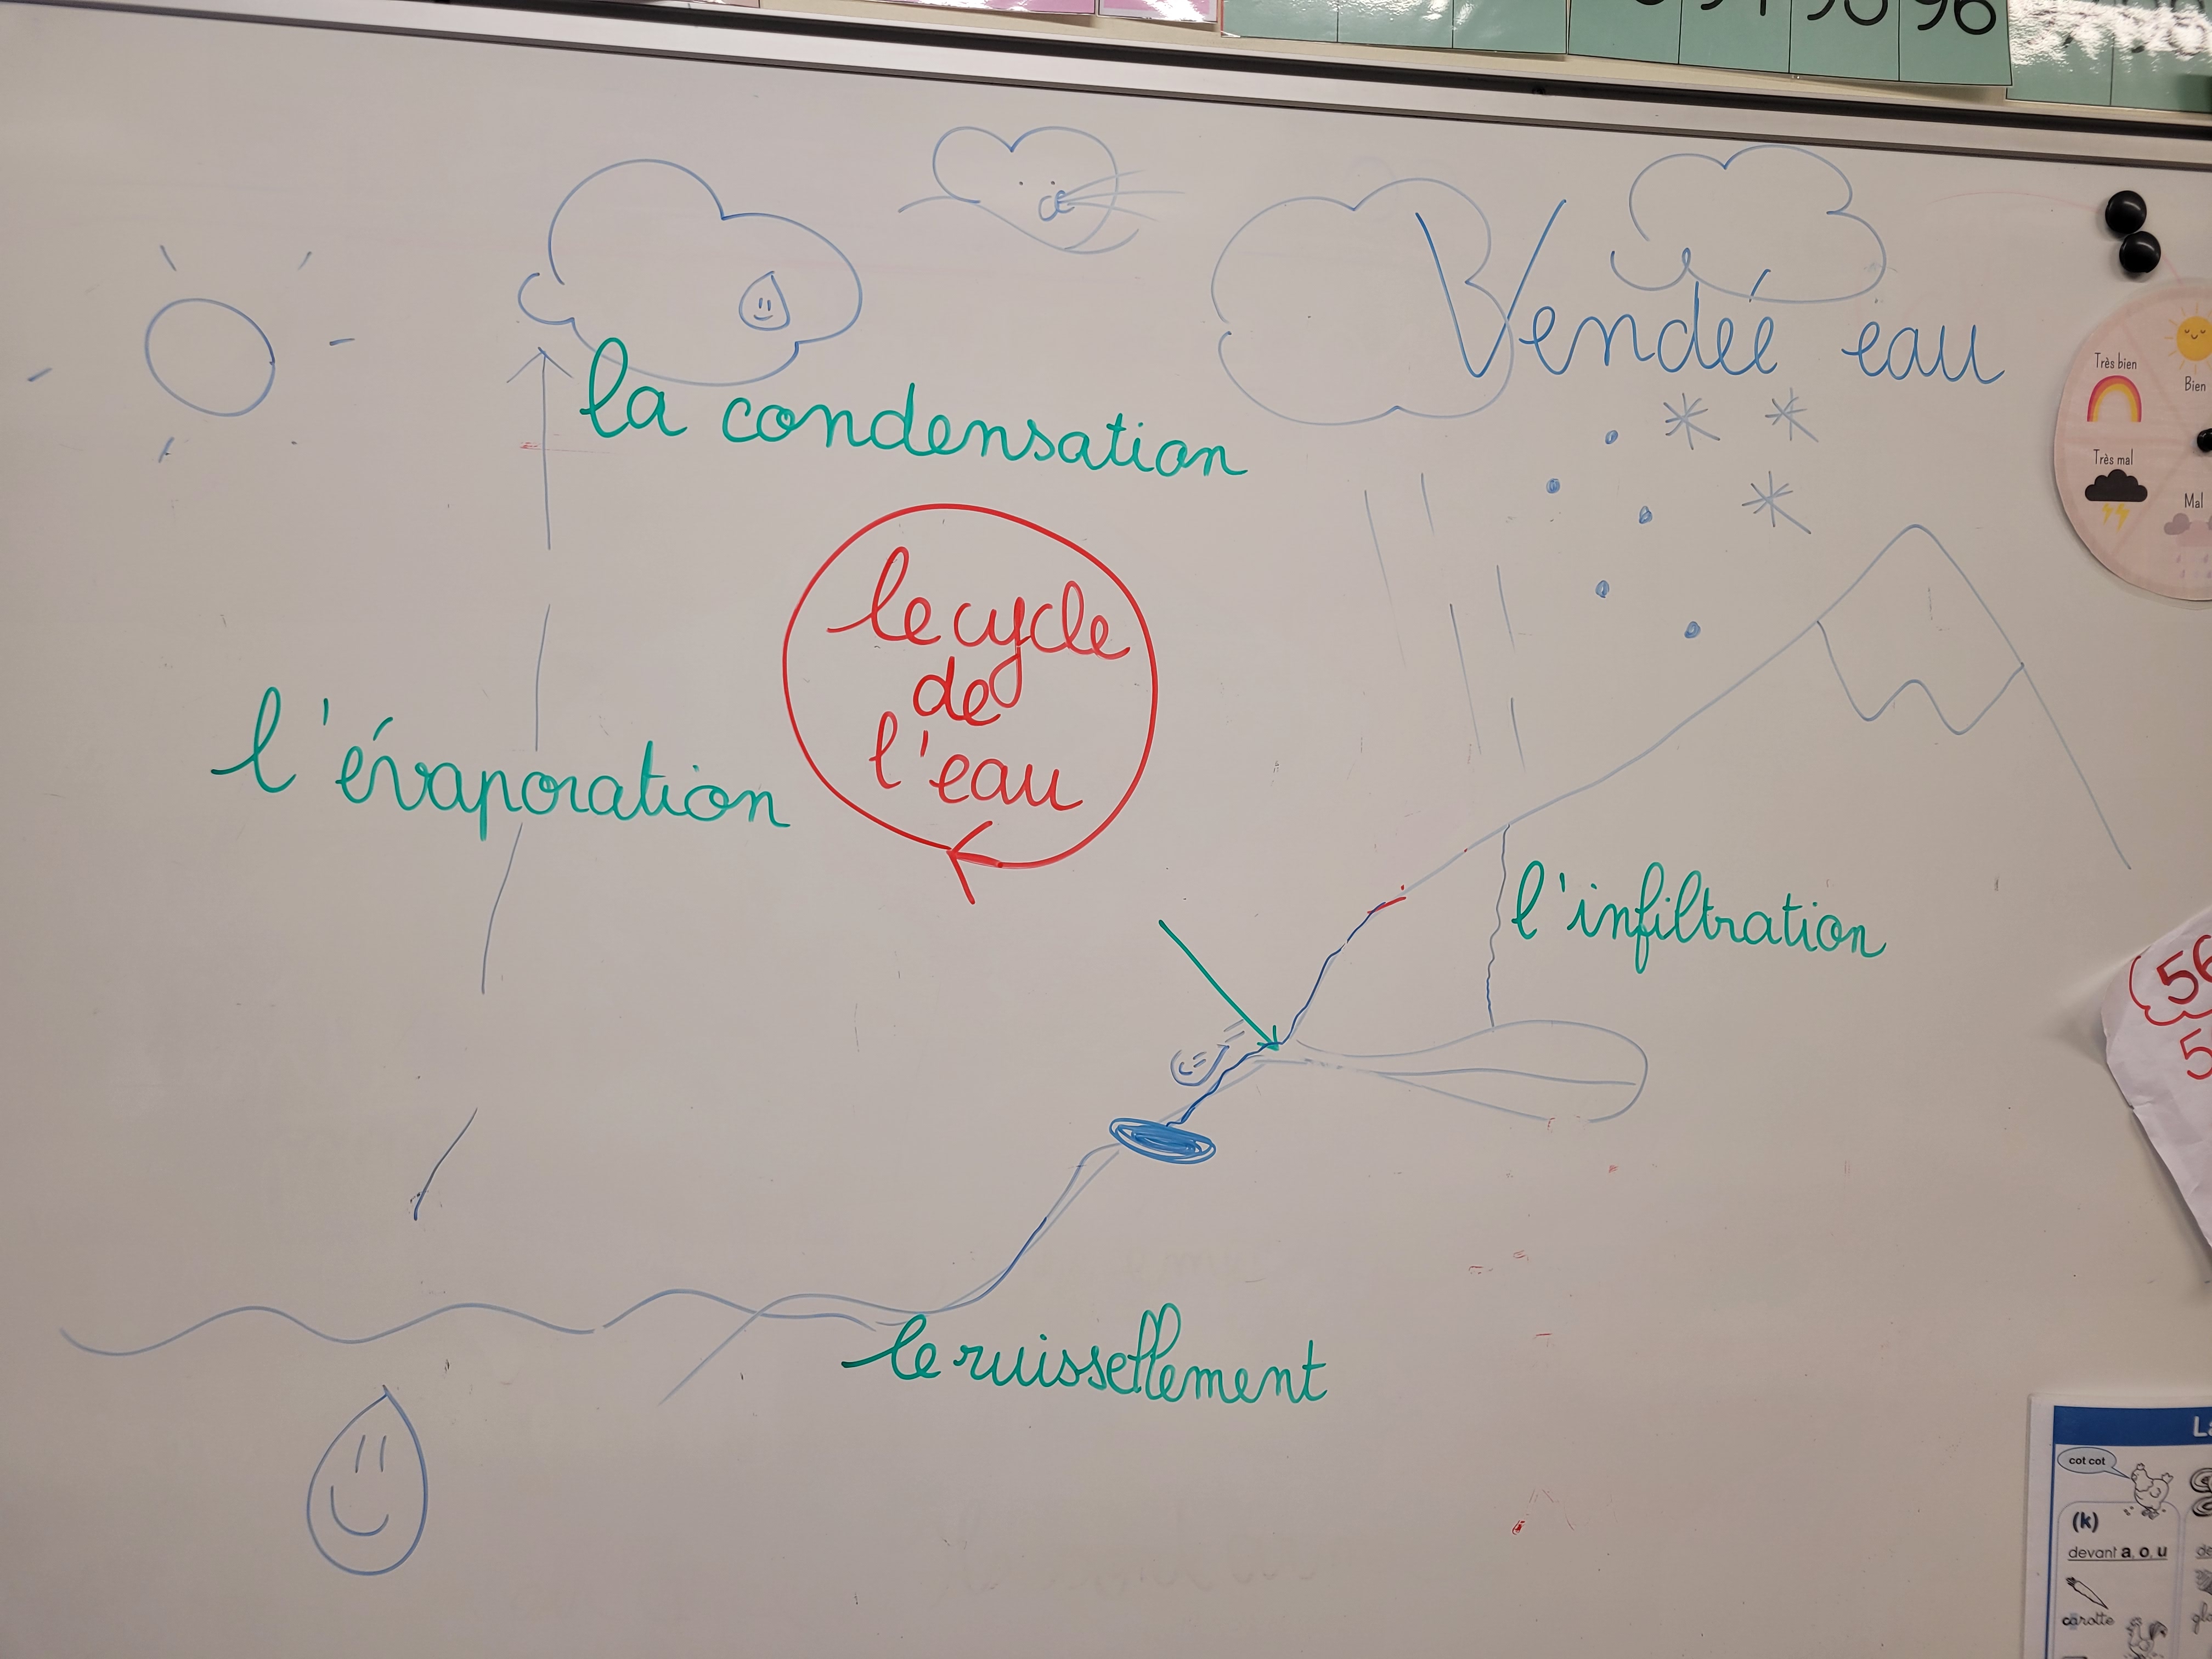 96
Vendée eau
la condensation
Très bien
Bien
Très mal
Mal
le cycle
de
l'eau
l'évaporation
l'infiltration
le ruissellement
cot cot
(k)
devant a, o, u
carotte